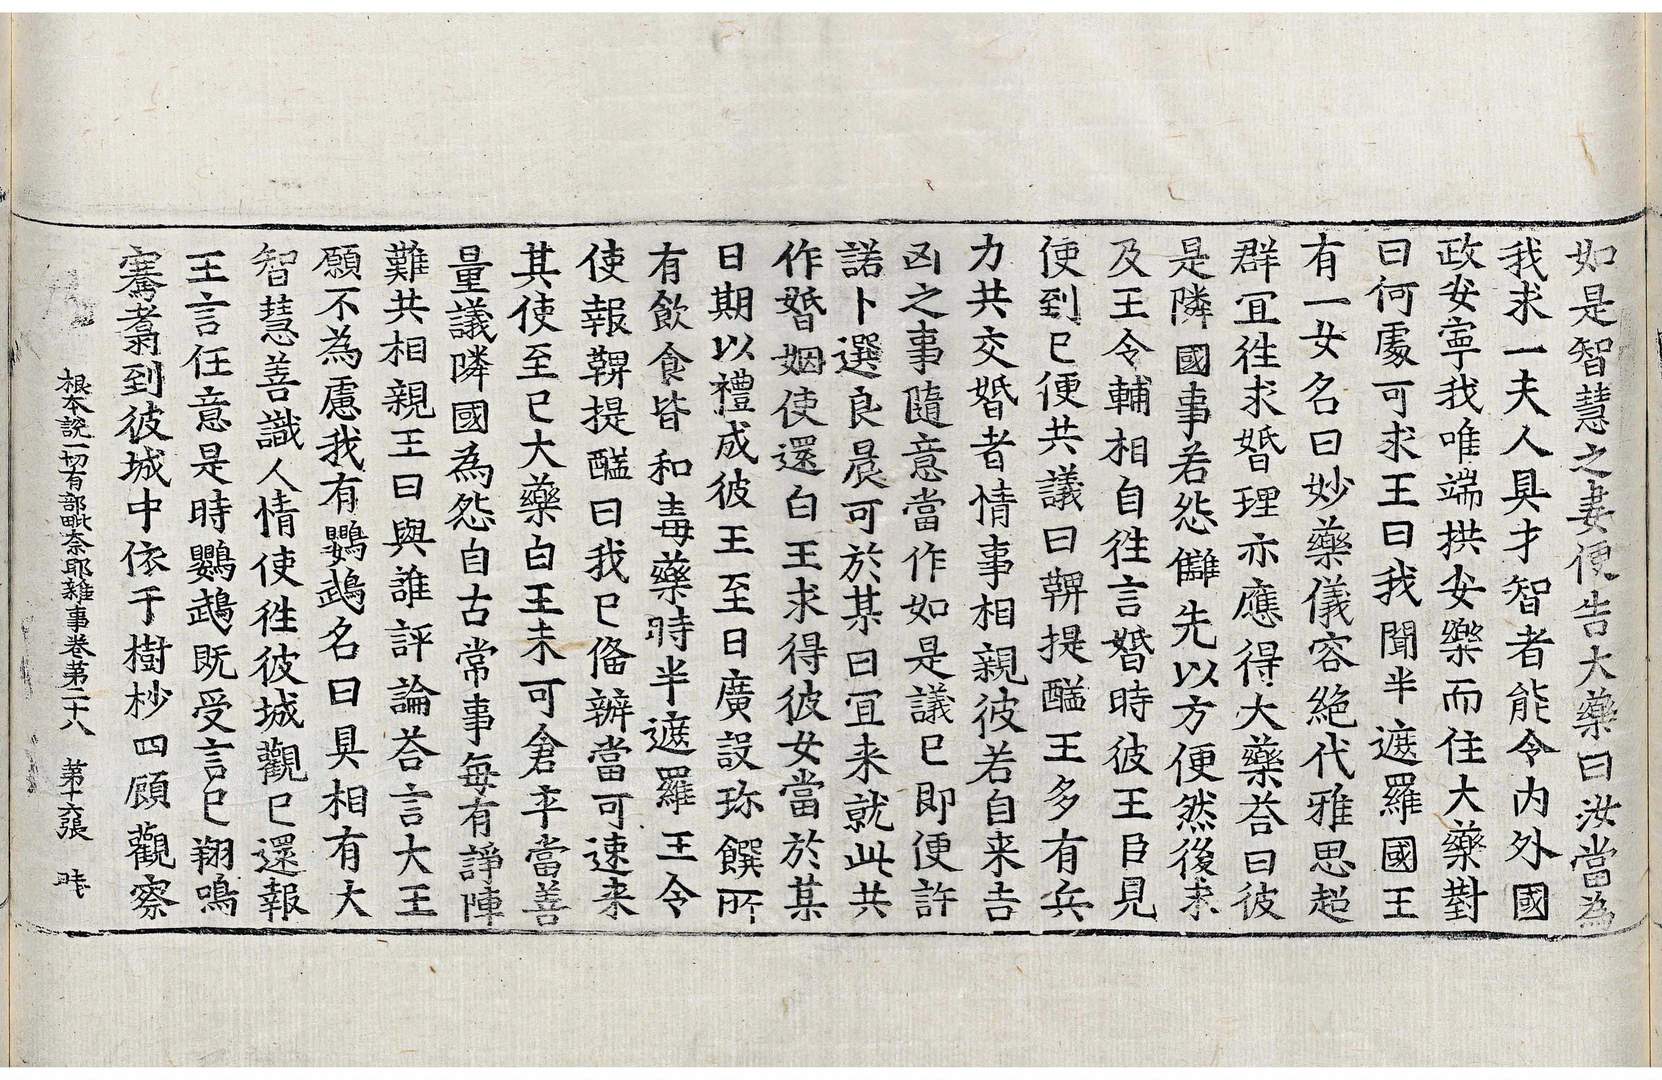 如是智慧之妻便告大藥曰汝當為
我求一夫人具才智者能令內外國
政安寧我唯端拱安樂而住大藥對
曰何處可求王曰我聞半遮羅國王
有一女名曰妙藥儀容絶代雅思超
群冝徃求婚理亦應得大藥荅曰彼
是隣國事若怨讎先以方便然後求
及王令輔相自徃言婚時彼王臣見
便到已便共議曰鞞提醯王多有兵
力共交婚者情事相親彼若自来吉
凶之事隨意當作如是議已即便許
諾卜選良晨可於某日冝来就此共
作婚姻使還白王求得彼女當於某
日期以禮成彼王至日廣設珎饌所
有飲食皆和毒藥時半遮羅王令
使報鞞提醯曰我已俻辦當可速来
其使至已大藥白王未可倉卒當善
量議隣國為怨自古常事每有諍陣
難共相親王曰與誰評論荅言大王
願不為慮我有鸚鵡名曰具相有大
智慧善識人情使徃彼城觀已還報
王言任意是時鸚鵡既受言已翔鳴
騫翥到彼城中依于樹杪四顧觀察
根本說一切有部毗奈耶雜事卷第二十八 第十六張 時